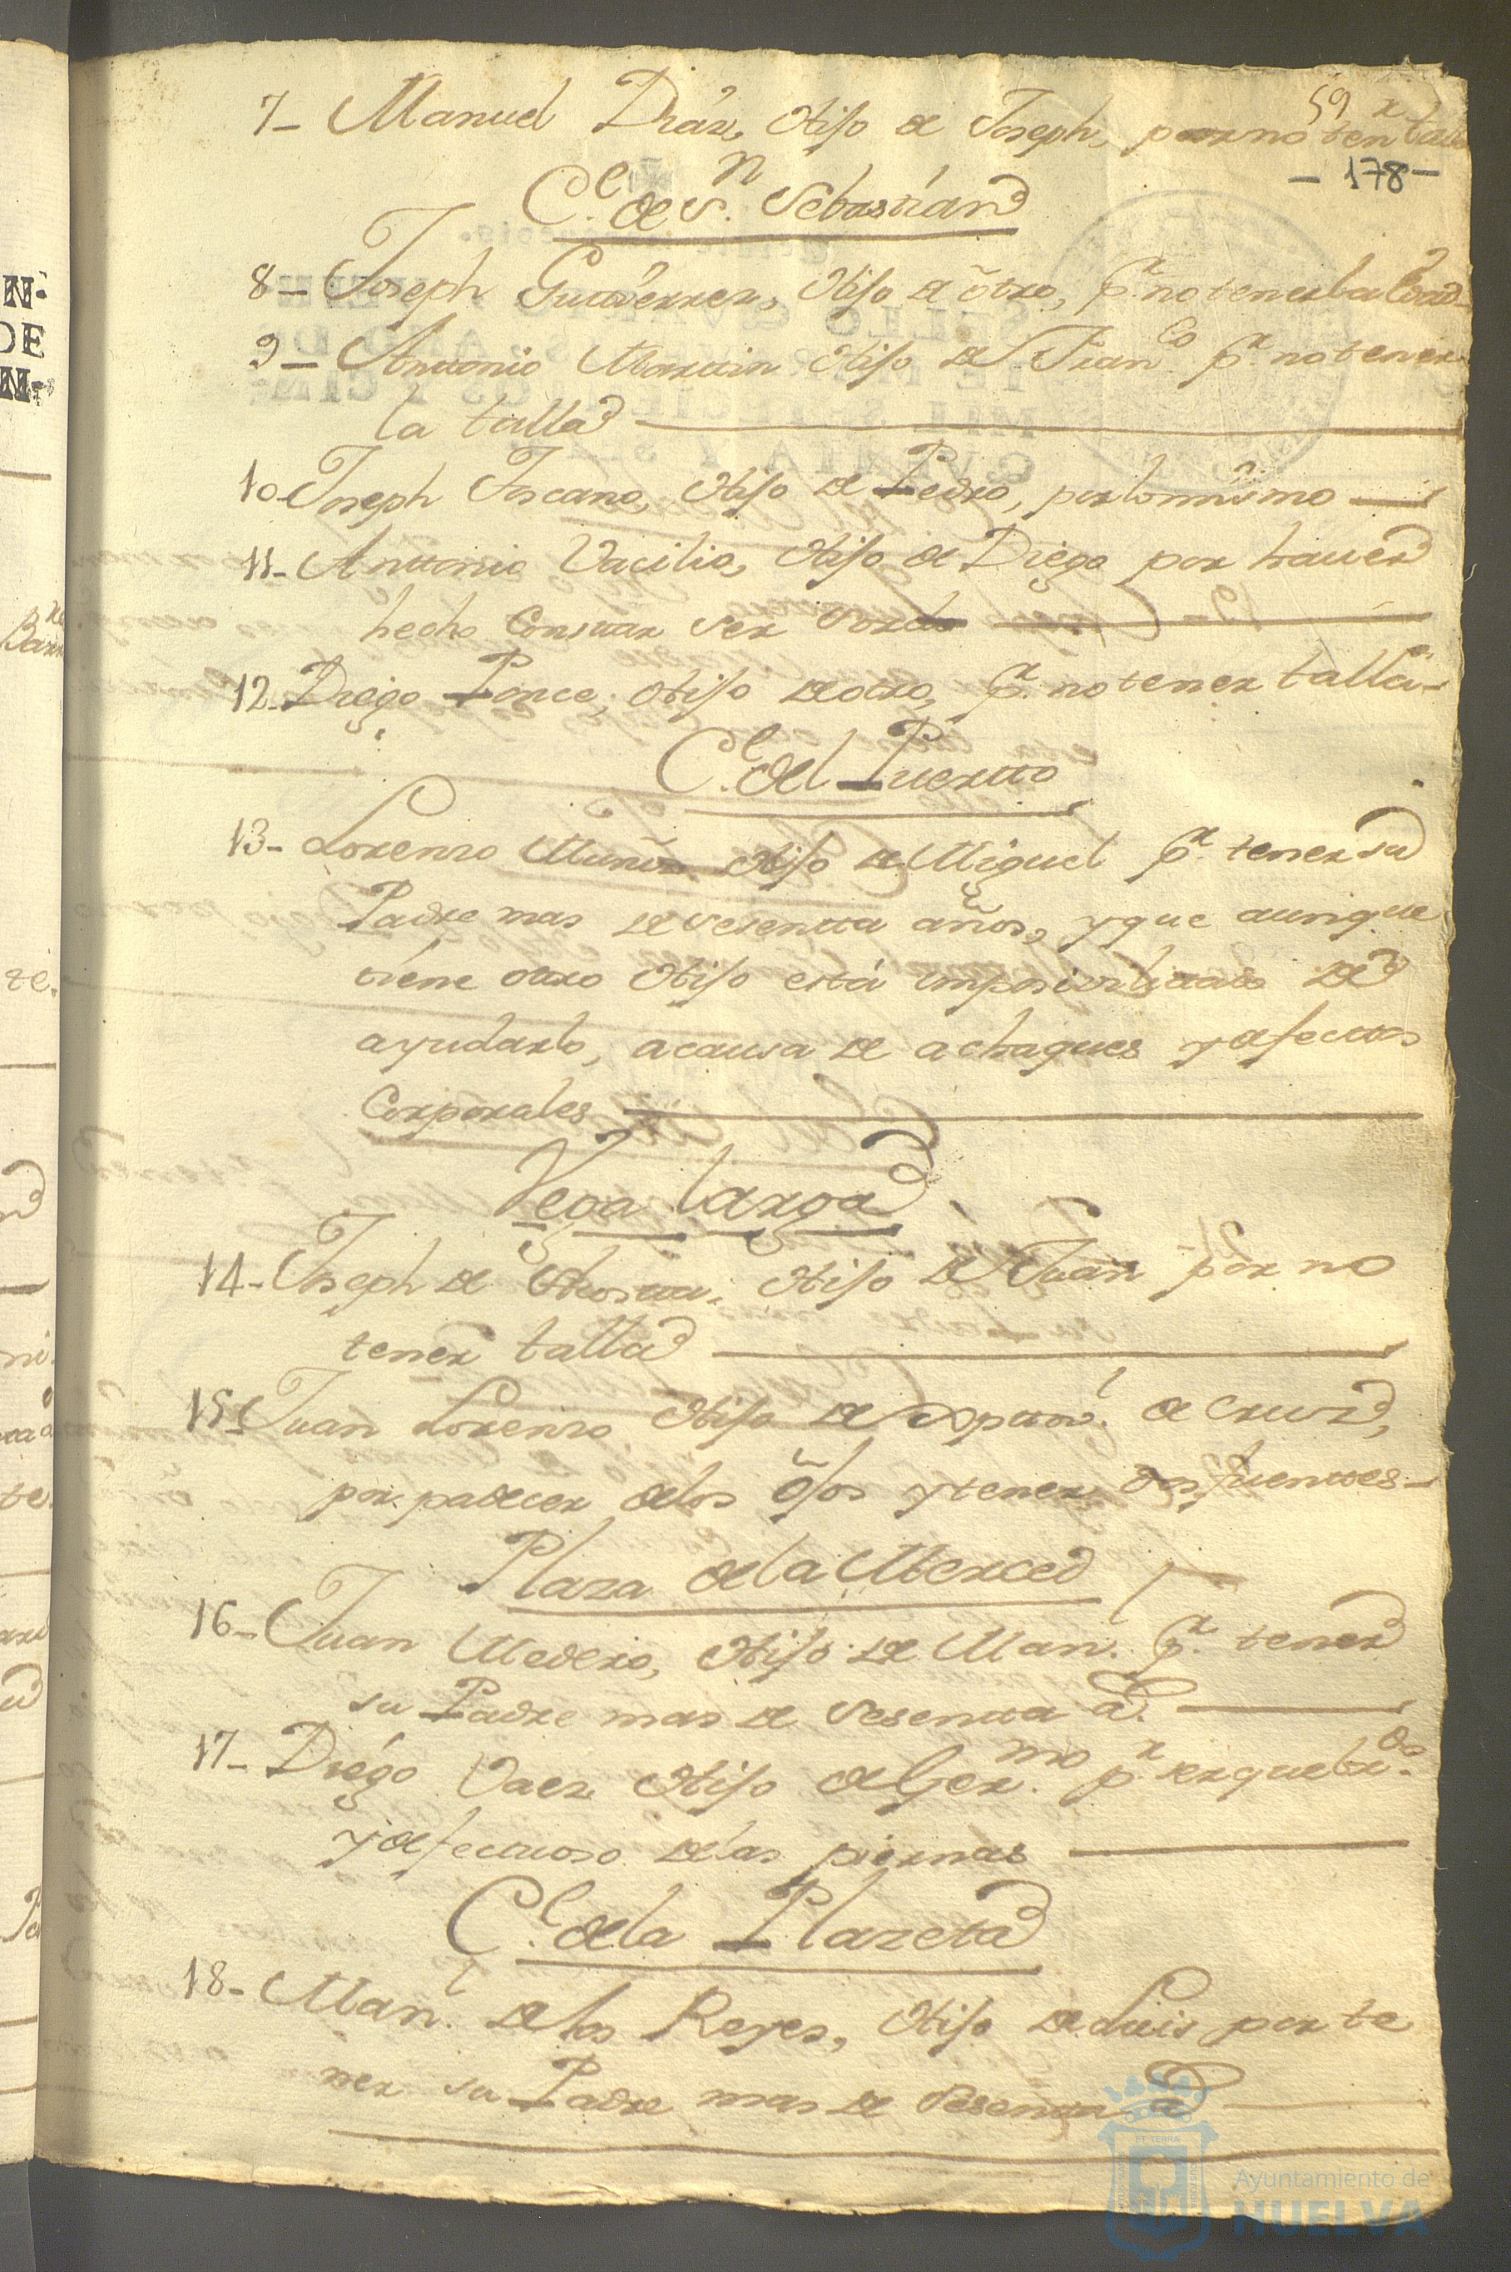 59
7- Manuel Diaz, Hijo de Joseph, por no tenr talla
-178-
Ce. de Sn. Sebastian
8- Joseph Gutierrez, Hijo de otro, pr. no tener la
9- Antonio Martin Hijo de Franco. pr. no tener
la talla
10- Joseph Toscano, Hijo de Pedro, por lo mismo
11- Anttonio Vacilio, Hijo de Diego por haver
hecho Constar ser sordo
12- Diego Ponce, Hijo de otro, pr. no tener talla-
Ce. del Puertto
13- Lorenzo Muñiz Hijo de Miguel pr. tener su
Padre mas de sesentta años, y que aunque
tiene otro Hijo está imposivilitado de
ayudarlo, a causa de achaques y defecttos
Corporales
Vega larga
14- Joseph de Acostta, Hijo de Juan por no
tener talla
15- Juan Lorenzo Hijo de de Cruz,
por padecer de los ojos y tener dos fuenttes-
Plaza de la Merced
16- Juan Medero, Hijo de Man. pr. tener
su Padre mas de sesentta a.
17- Diego Vaez Hijo de Germo. pr. ser quebrdo.
y defectuoso de las piernas
Ce. de la Plazeta
18- Manl. de los Reyes, Hijo de Luis por te
ner su Padre mas de sesentta a
Ayuntamiento de
HUELVA